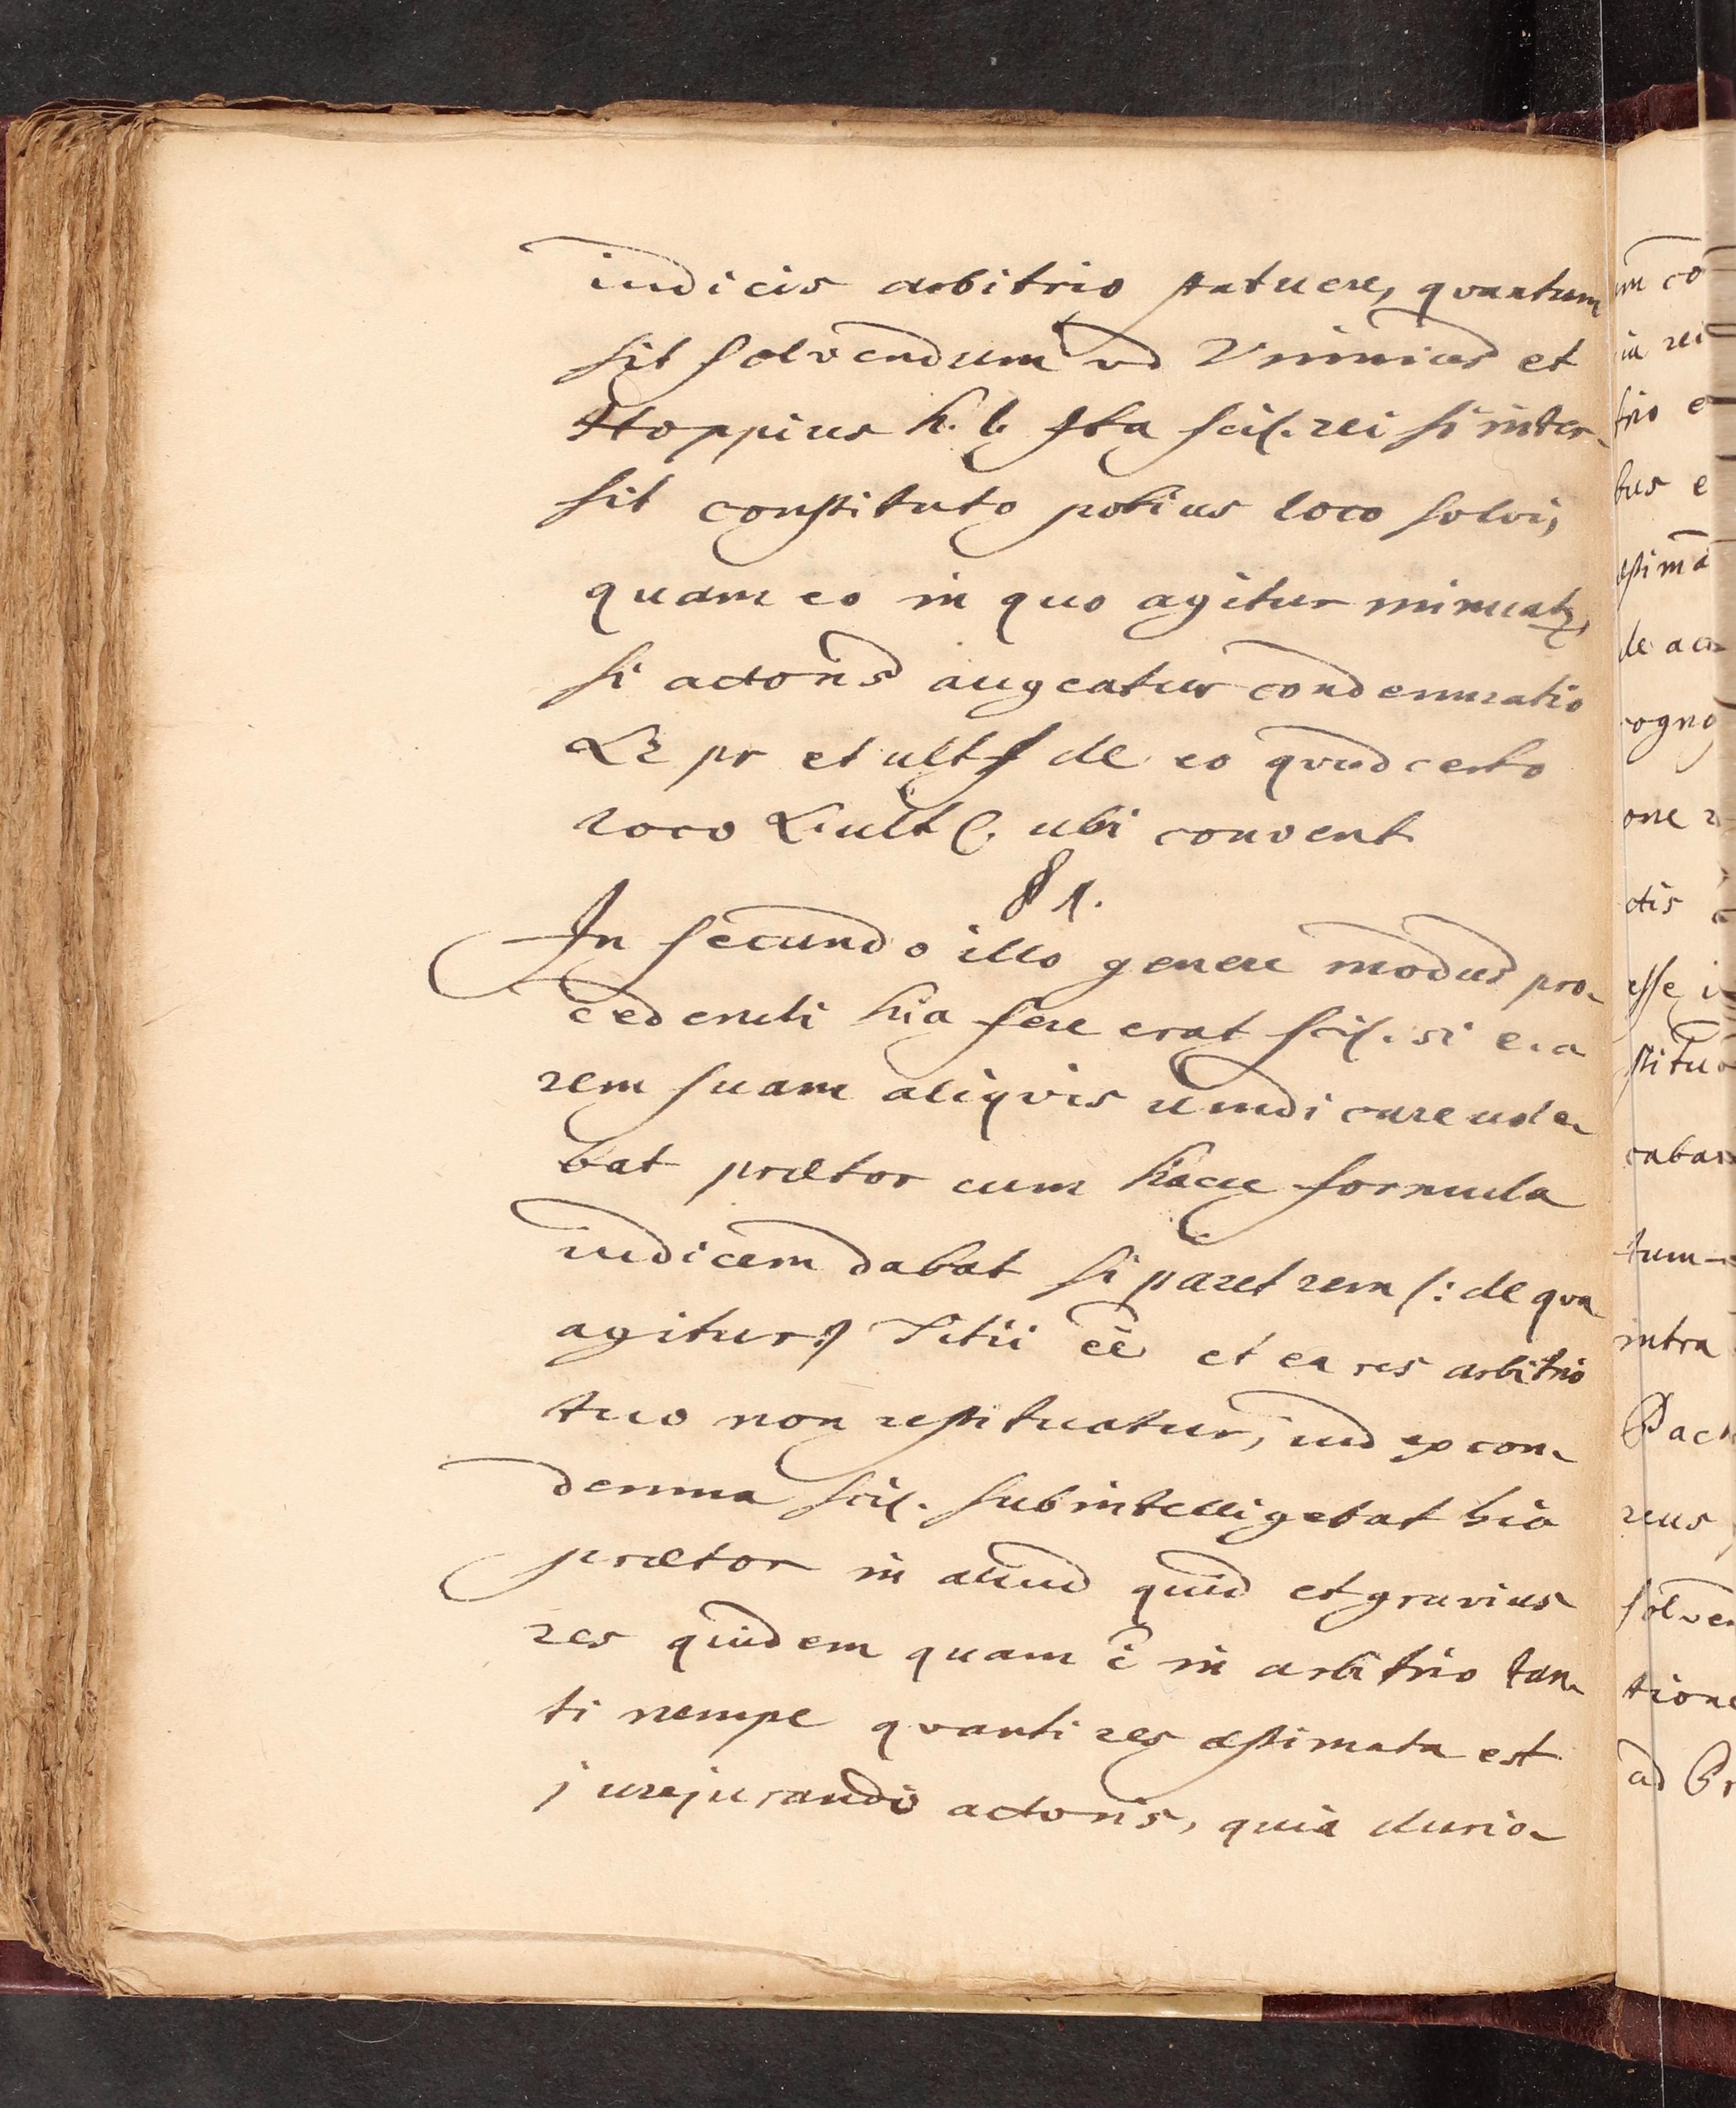 iudicis arbitrio statuere, quantum
sit solvendum vid Vinnius et
Hoppius h. l. Ita scil. rei si inter-
sit constituto potius loco solvi,
quam eo in quo agitur minuatr,
si actoris augeatur condemnatio
L2 pr et ult ff de eo quod certo
loco L. ult C. ubi convent
§ 1.
In secundo illo genere modus pro-
cedendi hic fere erat scil. si e.c.
rem suam aliqvis vindicare vole-
bat prætor cum hacce formula
iudicem dabat si paret rem /: de qva
agitur :/ Titii eē et ea res arbitrio
tuo non restituatur, iudex con-
demna scil. subintelligebat hic
prætor in aliud quid et gravius
res quidem quam ē in arbitrio tan-
ti nempe qvanti res æstimata est
jurejurando actoris, quia durio-
um co
ia rei
trio e
bus e
de ac-
cogno
one
ctis
esse i
stitu
caba
tum-
intra
Pact
reus,
solven
tione
ad Pr